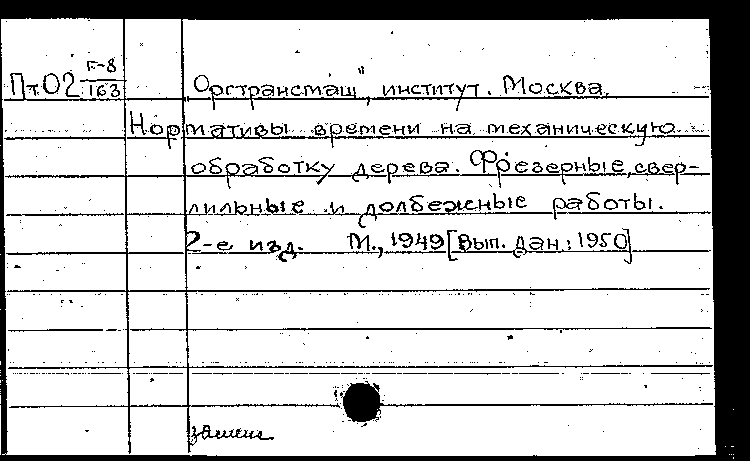 Пт02 Г-8/163 „Оргтрансмаш", институт. Москва.
Нормативы времени на механическую
обработку дерева. Фрезерные, свер-
лильные и долбежные работы.
2-е изд. М., 1949 [Вып. дан: 1950]